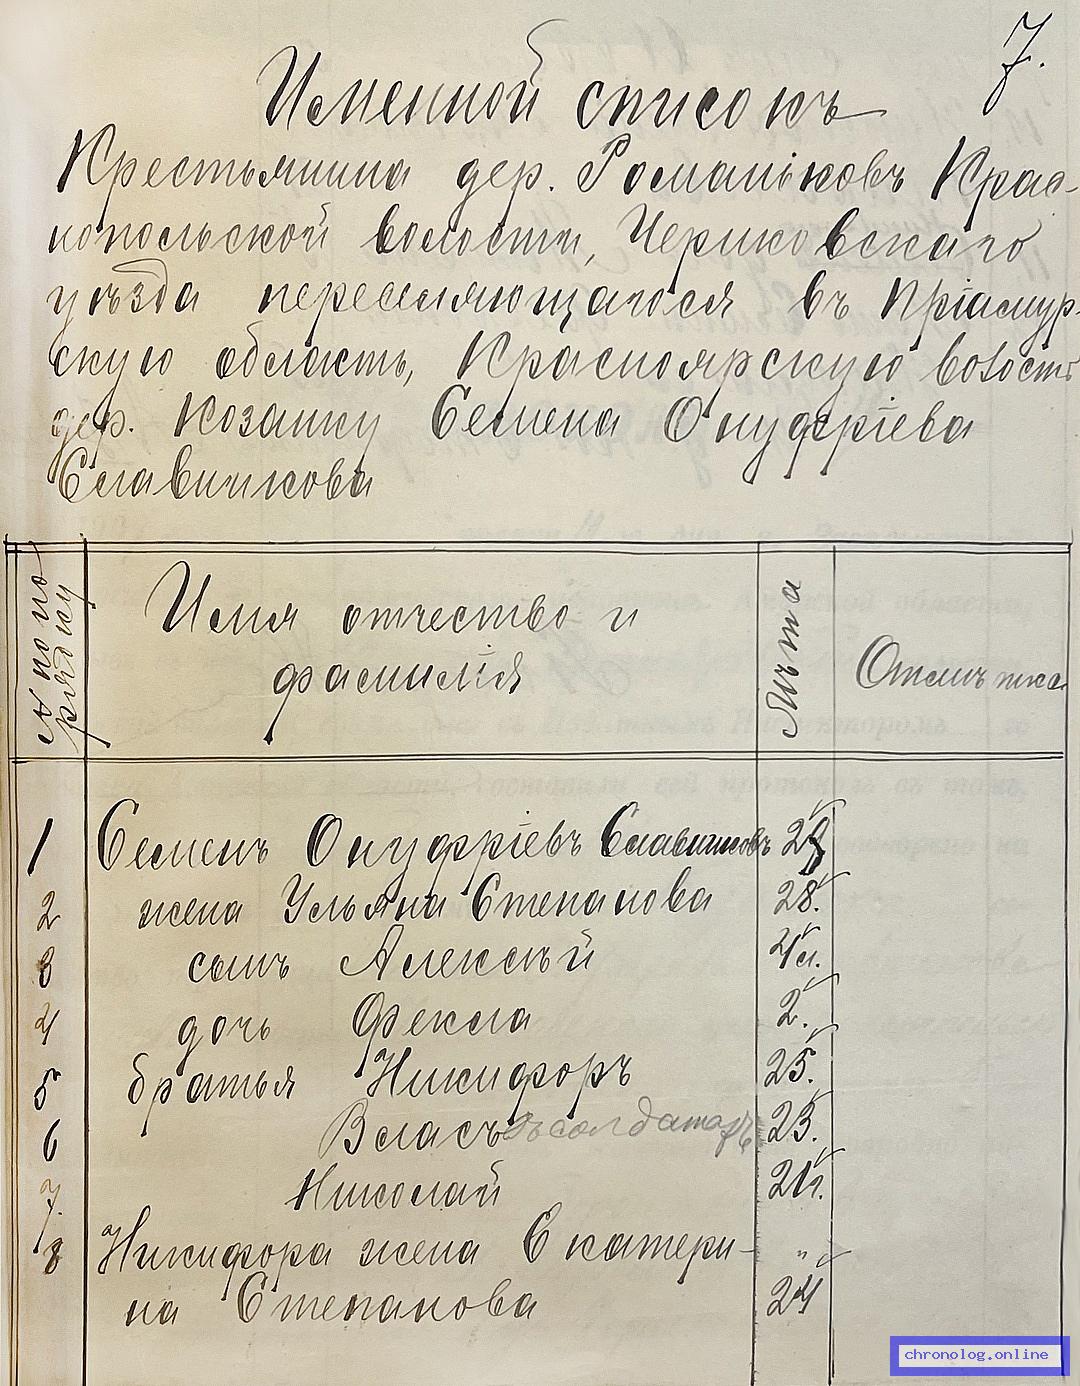 7.
Именной списокъ
Крестьянина дер. Романьковъ Крас-
нопольской волости, Чериковскаго
уѣзда переселяющагося въ Пріамур-
скую область, Красноярскую волость
дер. Козанку Семена Онуфріева
Славикова
№ по по
рядку
Имя отчество и
фамилія
Лѣта
Отмѣтка
1 Семенъ Онуфріевъ 29
2 жена Ульяна Степанова 28.
3 сынъ Алексѣй 4 л.
4 дочь Фекла 2.
5 братья Никифоръ 25.
6 Власъ въ солдатахъ 23.
7. Николай 21 г.
8 Никифора жена Екатери- "
на Степанова 24
chronolog.online